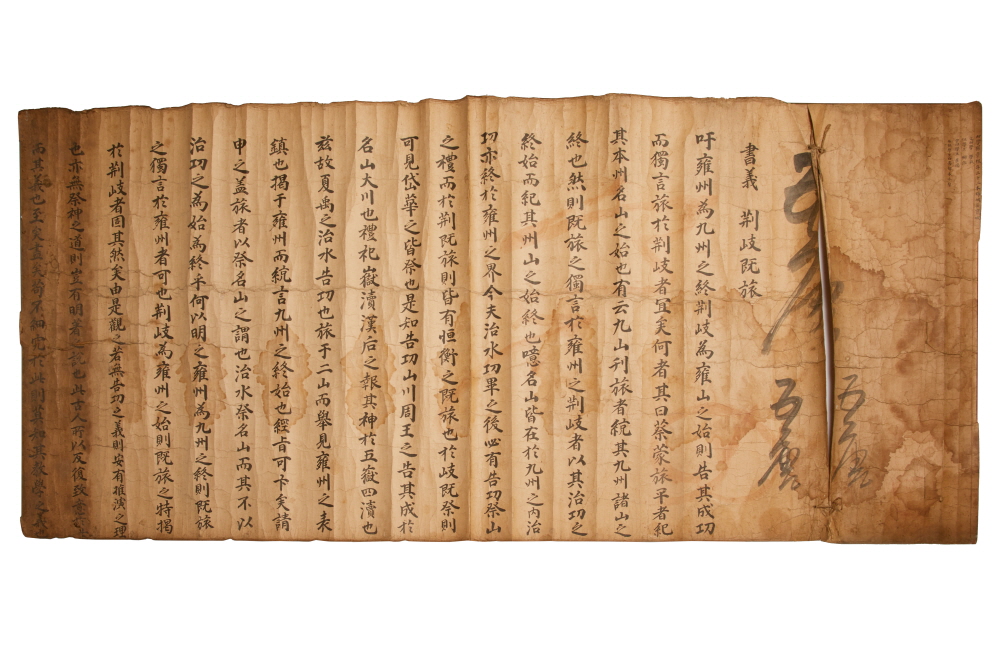 書義 荆岐既旅
吁雍州為九州之終荆岐為雍山之始則告其成功
而獨言旅於荆岐者宜矣何者其曰蔡蒙旅平者紀
其本州名山之始也有云九山刊旅者統其九州諸山之
終也然則既旅之獨言於雍州之荆岐者以其治功之
終始而紀其州山之始終也噫名山皆在於九州之內治
功亦終於雍州之界今夫治水功畢之後必有告功祭山
之禮而於荆既旅則昏有恒衡之既旅也於岐既祭則
可見岱華之皆祭也是知告功山川周王之告其成於
名山大川也禮祀嶽瀆漢后之報其神於五嶽四瀆也
玆故夏禹之治水告功也旅于二山而舉見雍州之表
鎮也揭于雍州而統言九州之終始也經旨可卞矣請
申之盖旅者以祭名山之謂也治水祭名山而其不以
治功之為始為終乎何以明之雍州為九州之終則既旅
之獨言於雍州者可也荆岐為雍州之始則既旅之特揭
於荆岐者固其然矣由是觀之若無告功之義則安有推演之理
也亦無祭神之道則豈有明著之說也此古人所以反復致意
而其義也至矣